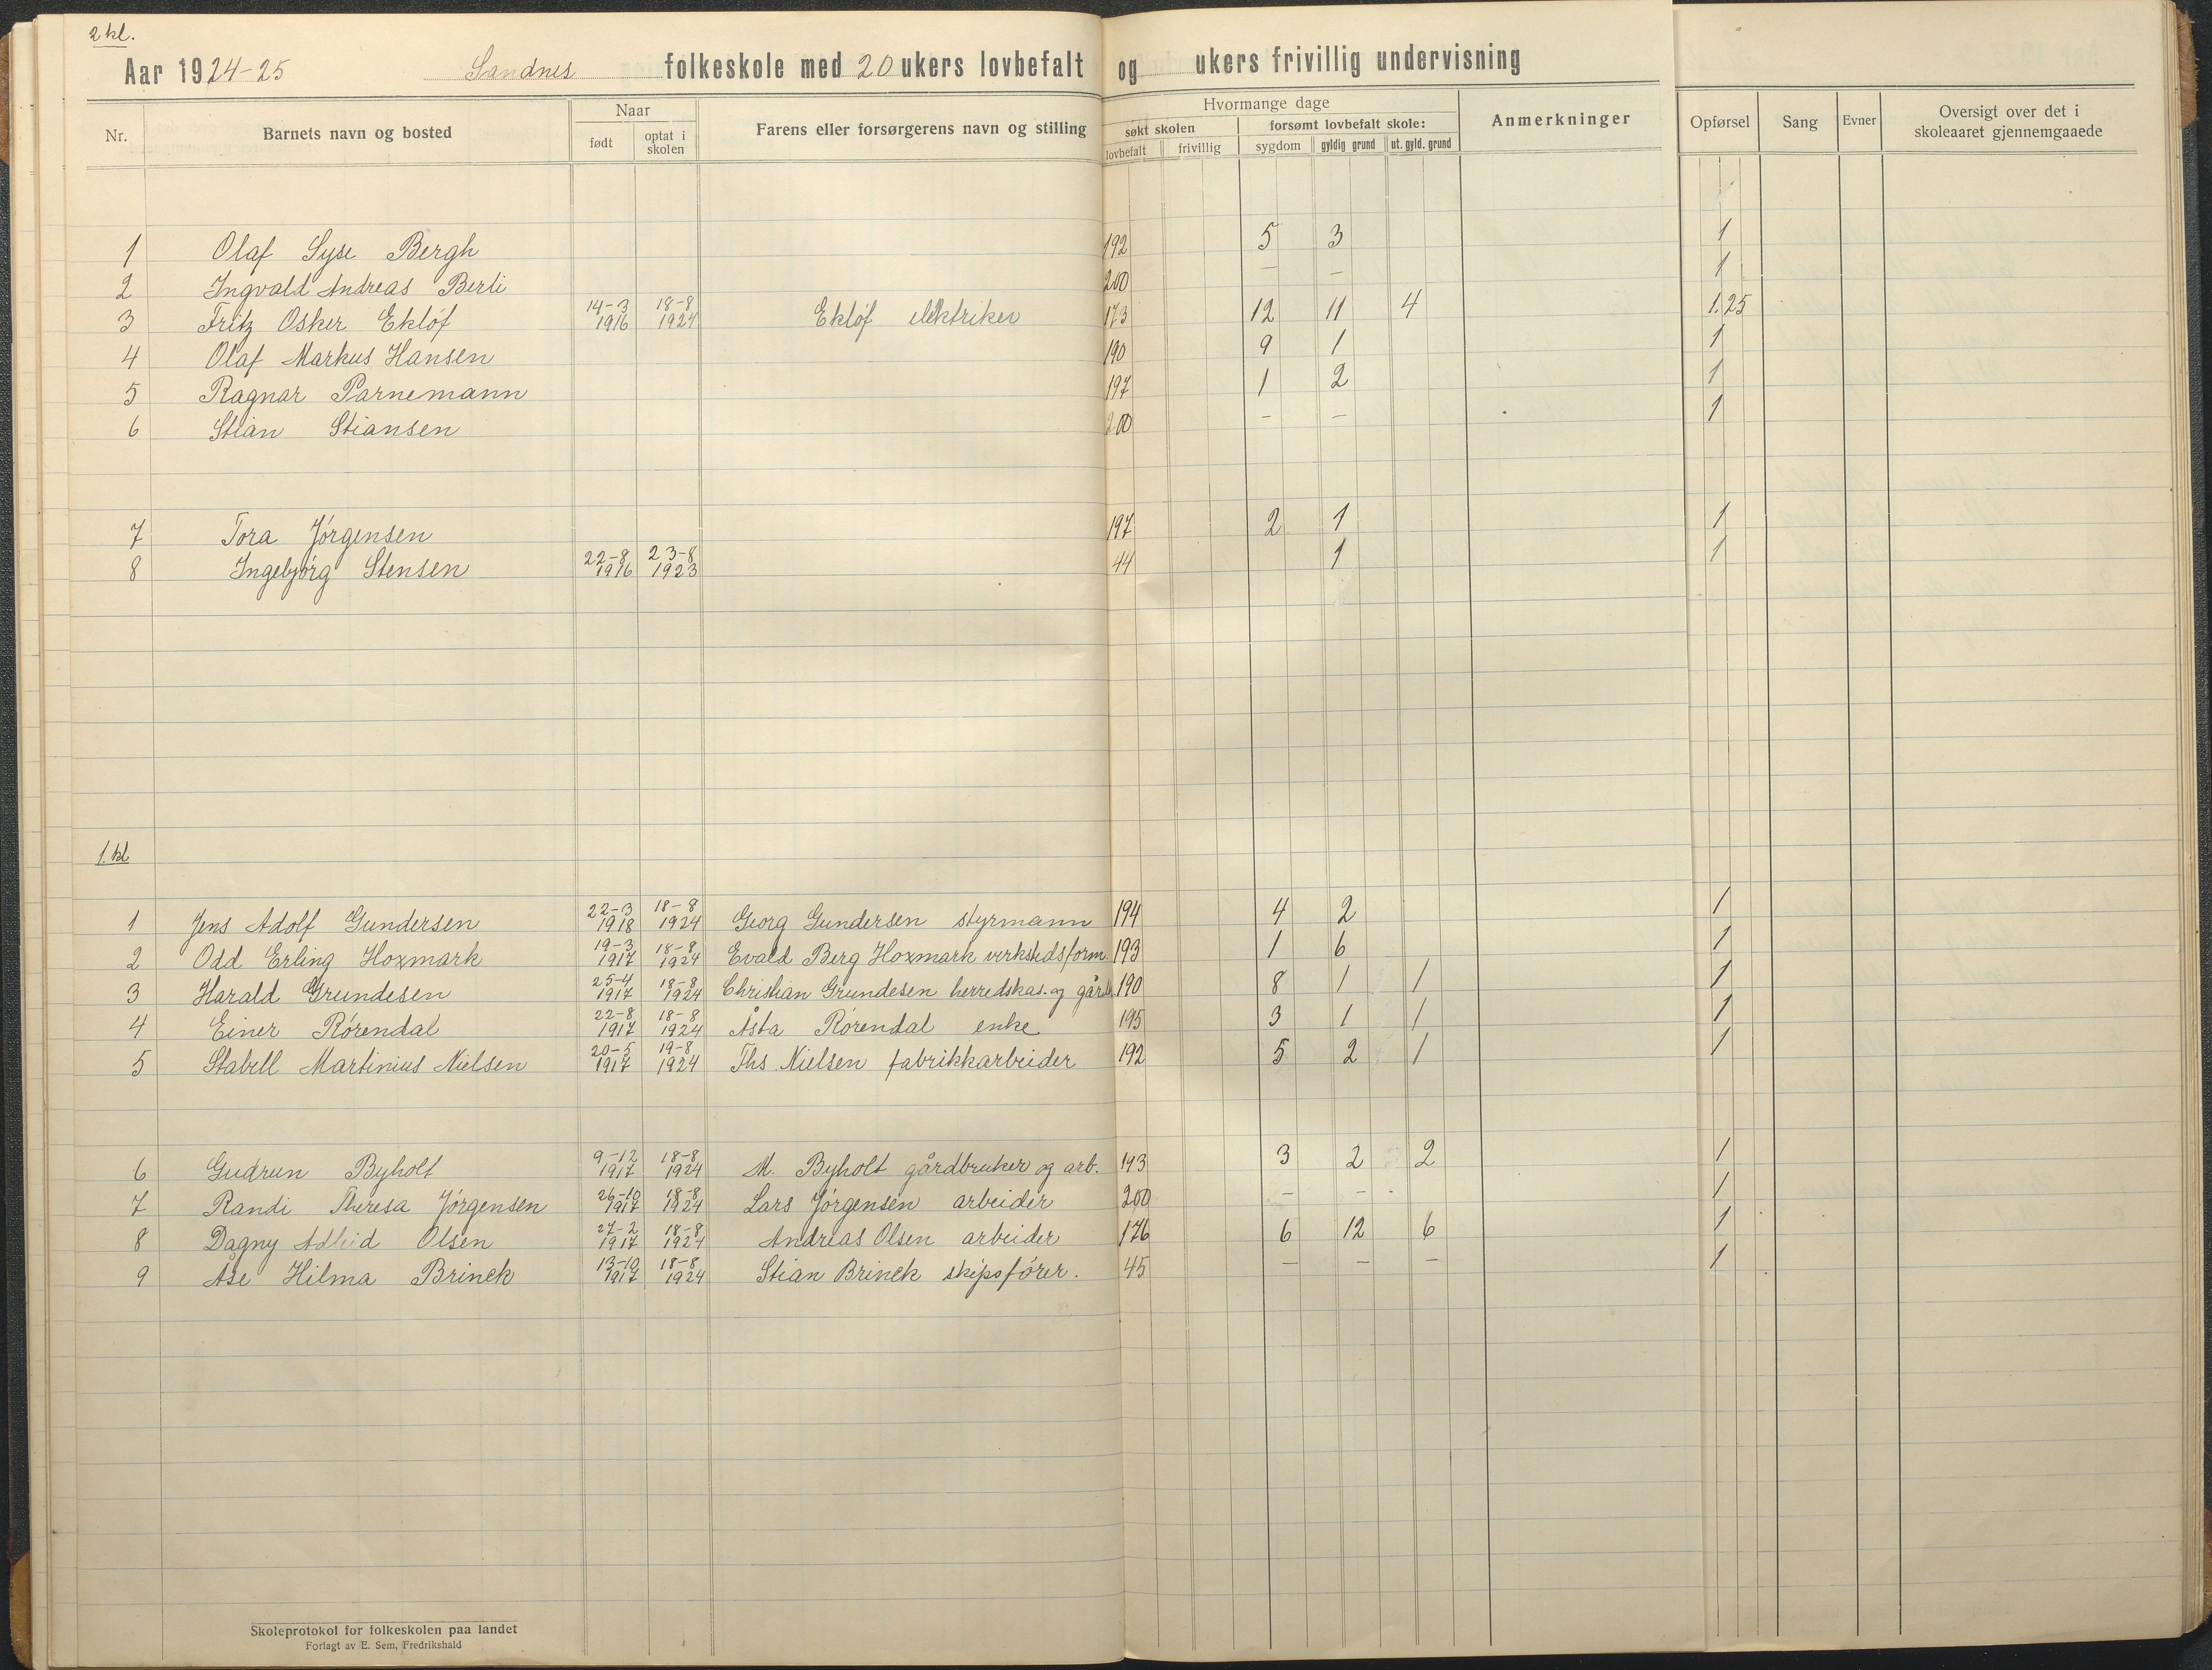 2 kl.
Aar 1924-25 Sandnes folkeskole med 20 ukers lovbefalt og ukers frivillig undervisning
Nr. Barnets navn og bosted Naar født optat i skolen Farens eller forsørgerens navn og stilling Hvormange dage søkt skolen lovbefalt frivillig forsømt lovbefalt skole: sygdom gyldig grund ut. gyld. grund Anmerkninger Opførsel Sang Evner Oversigt over det i skoleaaret gjennemgaaede
1 Olaf Syse Bergh 192 5 3 1
2 Ingvald Andreas Berli 200 — — 1
3 Fritz Osker Ekløf 14-3 1916 18-8 1924 Ekløf elektriker 173 12 11 4 1.25
4 Olaf Markus Hansen 190 9 1 1
5 Ragnar Parnemann 197 1 2 1
6 Stian Stiansen 200 — — 1
7 Tora Jørgensen 197 2 1 1
8 Ingebjørg Stensen 22-8 1916 23-8 1923 44 1 1
1. kl
1 Jens Adolf Gundersen 22-3 1918 18-8 1924 Georg Gundersen styrmann 194 4 2 1
2 Odd Erling Hoxmark 19-3 1917 18-8 1924 Evald Berg Hoxmark verkstedsform. 193 1 6 1
3 Harald Grundesen 25-4 1917 18-8 1924 Christian Grundesen herredskas. og gårdb. 190 8 1 1 1
4 Einer Rørendal 22-8 1917 18-8 1924 Åsta Rørendal enke 195 3 1 1 1
5 Stabell Martinius Nielsen 20-5 1917 19-8 1924 Ths. Nielsen fabrikkarbeider 192 5 2 1 1
6 Gudrun Byholt 9-12 1917 18-8 1924 M. Byholt gårdbruker og arb. 193 3 2 2 1
7 Randi Theresa Jørgensen 26-10 1917 18-8 1924 Lars Jørgensen arbeider 200 — — 1
8 Dagny Adleid Olsen 27-2 1917 18-8 1924 Andreas Olsen arbeider 176 6 12 6 1
9 Åse Hilma Brinck 13-10 1917 18-8 1924 Stian Brinck skipsfører. 45 — — — 1
Skoleprotokol for folkeskolen paa landet
Forlagt av E. Sem, Fredrikshald